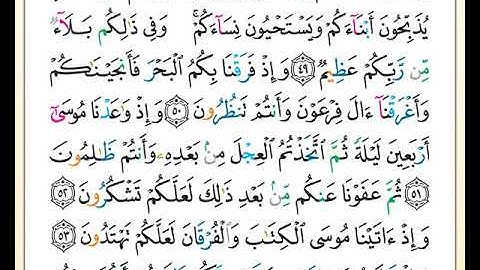 يُذَبِّحُونَ أَبْنَآءَكُمْ وَيَسْتَحْيُونَ نِسَآءَكُمْ ۚ وَفِى ذَٰلِكُم بَلَآءٌ
مِّن رَّبِّكُمْ عَظِيمٌ ﴿٤٩﴾ وَإِذْ فَرَقْنَا بِكُمُ ٱلْبَحْرَ فَأَنجَيْنَٰكُمْ
وَأَغْرَقْنَآ ءَالَ فِرْعَوْنَ وَأَنتُمْ تَنظُرُونَ ﴿٥٠﴾ وَإِذْ وَٰعَدْنَا مُوسَىٰٓ
أَرْبَعِينَ لَيْلَةً ثُمَّ ٱتَّخَذْتُمُ ٱلْعِجْلَ مِنۢ بَعْدِهِۦ وَأَنتُمْ ظَٰلِمُونَ
﴿٥١﴾ ثُمَّ عَفَوْنَا عَنكُم مِّنۢ بَعْدِ ذَٰلِكَ لَعَلَّكُمْ تَشْكُرُونَ ﴿٥٢﴾
وَإِذْ ءَاتَيْنَا مُوسَى ٱلْكِتَٰبَ وَٱلْفُرْقَانَ لَعَلَّكُمْ تَهْتَدُونَ ﴿٥٣﴾